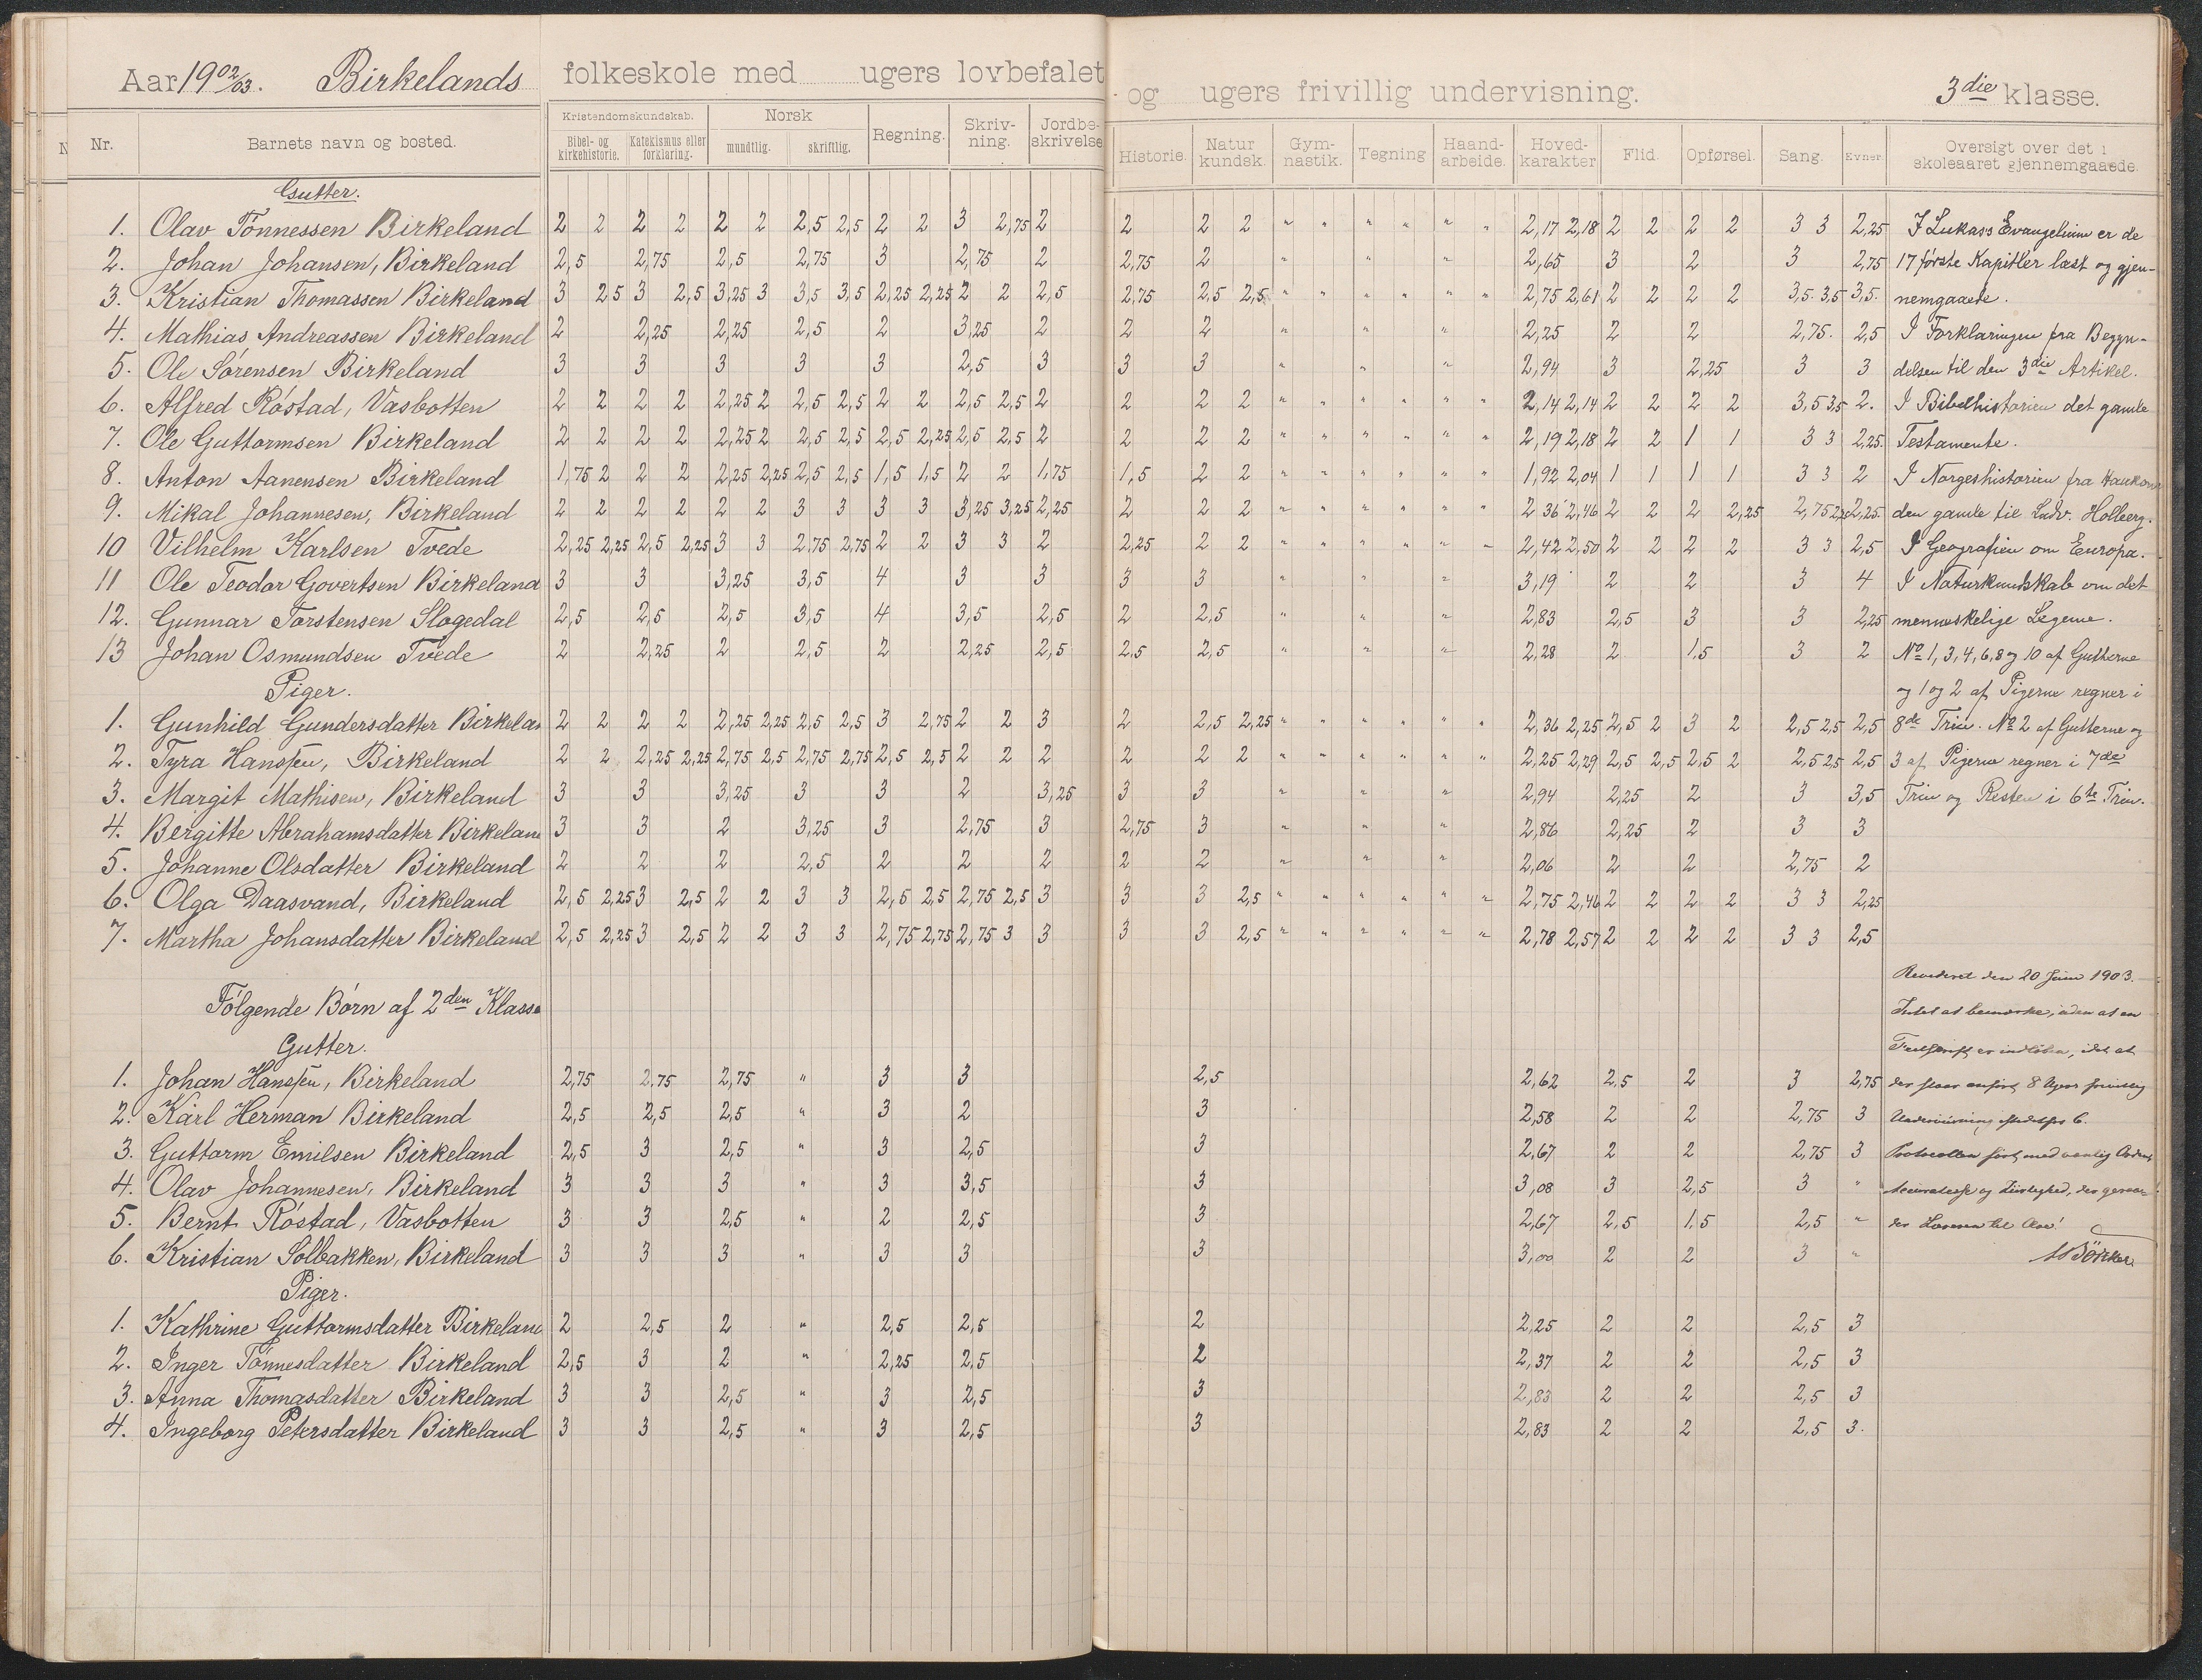 Aar 1902/03. Birkelands folkeskole med ugers lovbefalet og ugers frivillig undervisning. 3die klasse.
Nr. Barnets navn og bosted. Kristendomskundskab. Bibel- og kirkehistorie. Katekismus eller forklaring. Norsk mundtlig. skriftlig. Regning. Skriv-ning. Jordbe-skrivelse Historie. Natur kundsk. Gym-nastik. Tegning Haand-arbeide. Hoved-karakter Flid. Opførsel. Sang. Evner. Oversigt over det i skoleaaret gjennemgaaede.
Gutter.
1. Olav Tönnessen Birkeland 2 2 2 2 2 2 2,5 2,5 2 2 3 2,75 2 2 2 2 " " " " " " 2,17 2,18 2 2 2 2 3 3 2,25 I Lukass Evangelium er de
2. Johan Johansen, Birkeland 2,5 2,75 2,5 2,75 3 2,75 2 2,75 2 " " " 2,65 3 2 3 2,75 17 første Kapitler læst og gjen-
3. Kristian Thomassen Birkeland 3 2,5 3 2,5 3,25 3 3,5 3,5 2,25 2,25 2 2 2,5 2,75 2,5 2,5 " " " " " " 2,75 2,61 2 2 2 2 3,5. 3,5 3,5. nemgaaede.
4. Mathias Andreassen Birkeland 2 2,25 2,25 2,5 2 3,25 2 2 2 " " " 2,25 2 2 2,75. 2,5 I Forklaringen fra Begyn-
5. Ole Sörensen Birkeland 3 3 3 3 3 2,5 3 3 3 " " " 2,94 3 2,25 3 3 delsen til den 3die Artikel.
6. Alfred Röstad, Vasbotten 2 2 2 2 2,25 2 2,5 2,5 2 2 2,5 2,5 2 2 2 2 " " " " " " 2,14 2,14 2 2 2 2 3,5 3,5 2. I Bibelhistorien det gamle
7. Ole Guttormsen Birkeland 2 2 2 2 2,25 2 2,5 2,5 2,5 2,25 2,5 2,5 2 2 2 2 " " " " " " 2,19 2,18 2 2 1 1 3 3 2,25. Testamente.
8. Anton Aanensen Birkeland 1,75 2 2 2 2,25 2,25 2,5 2,5 1,5 1,5 2 2 1,75 1,5 2 2 " " " " " " 1,92 2,04 1 1 1 1 3 3 2 I Norgeshistorien fra Haakon
9. Mikal Johannesen, Birkeland 2 2 2 2 2 2 3 3 3 3 3,25 3,25 2,25 2 2 2 " " " " " " 2,36 2,46 2 2 2 2,25 2,75 2,25. den gamle til Ludv. Holberg.
10 Vilhelm Karlsen Tvede 2,25 2,25 2,5 2,25 3 3 2,75 2,75 2 2 3 3 2 2,25 2 2 " " " " " " 2,42 2,50 2 2 2 2 3 3 2,5 I Geografien om Europa.
11 Ole Teodor Govertsen Birkeland 3 3 3,25 3,5 4 3 3 3 3 " " " 3,19 2 2 3 4 I Naturkundskab om det
12. Gunnar Torstensen Slogedal 2,5 2,5 2,5 3,5 4 3,5 2,5 2 2,5 " " " 2,83 2,5 3 3 2,25 menneskelige Legeme.
13 Johan Osmundsen Tvede 2 2,25 2 2,5 2 2,25 2,5 2,5 2,5 " " " 2,28 2 1,5 3 2 No 1, 3, 4, 6, 8 og 10 af Gutterne
Piger. og 1 og 2 af Pigerne regner i
1. Gunhild Gundersdatter Birkelan 2 2 2 2 2,25 2,25 2,5 2,5 3 2,75 2 2 3 2 2,5 2,25 " " " " " " 2,36 2,25 2,5 2 3 2 2,5 2,5 2,5 8de Trin. No 2 af Gutterne og
2. Tyra Hanssen, Birkeland 2 2 2,25 2,25 2,75 2,5 2,75 2,75 2,5 2,5 2 2 2 2 2 2 " " " " " " 2,25 2,29 2,5 2,5 2,5 2 2,5 2,5 2,5 3 af Pigerne regner i 7de
3. Margit Mathisen, Birkeland 3 3 3,25 3 3 2 3,25 3 3 " " " 2,94 2,25 2 3 3,5 Trin og Resten i 6te Trin.
4. Bergitte Abrahamsdatter Birkeland 3 3 2 3,25 3 2,75 3 2,75 3 " " " 2,86 2,25 2 3 3
5. Johanne Olsdatter Birkeland 2 2 2 2,5 2 2 2 2 2 " " " 2,06 2 2 2,75 2
6. Olga Daasvand, Birkeland 2,5 2,25 3 2,5 2 2 3 3 2,5 2,5 2,75 2,5 3 3 3 2,5 " " " " " " 2,75 2,46 2 2 2 2 3 3 2,25
7. Martha Johansdatter Birkeland 2,5 2,25 3 2,5 2 2 3 3 2,75 2,75 2,75 3 3 3 3 2,5 " " " " " " 2,78 2,57 2 2 2 2 3 3 2,5
Revideret den 20 Juni 1903.
Følgende Børn af 2den Klasse Intet at bemærke, uden at en
Gutter. Feilskrift er indløben, idet at
1. Johan Hanssen, Birkeland 2,75 2,75 2,75 " 3 3 2,5 2,62 2,5 2 3 2,75 der staar anført 8 Ugers frivillig
2. Karl Herman Birkeland 2,5 2,5 2,5 " 3 2 3 2,58 2 2 2,75 3 Undervisning istedetfor 6.
3. Guttorm Emilsen Birkeland 2,5 3 2,5 " 3 2,5 3 2,67 2 2 2,75 3 Protocollen ført med vanlig Orden,
4. Olav Johannesen, Birkeland 3 3 3 " 3 3,5 3 3,08 3 2,5 3 " og Ziirlighed, der
5. Bernt Röstad, Vasbotten 3 3 2,5 " 2 2,5 3 2,67 2,5 1,5 2,5 " der Læreren til Ære!
6. Kristian Solbakken, Birkeland 3 3 3 " 3 3 3 3,00 2 2 3 "
Piger.
1. Kathrine Guttormsdatter Birkeland 2 2,5 2 " 2,5 2,5 2 2,25 2 2 2,5 3
2. Inger Tönnesdatter Birkeland 2,5 3 2 " 2,25 2,5 2 2,37 2 2 2,5 3
3. Anna Thomasdatter Birkeland 3 3 2,5 " 3 2,5 3 2,83 2 2 2,5 3
4. Ingeborg Petersdatter Birkeland 3 3 2,5 " 3 2,5 3 2,83 2 2 2,5 3.